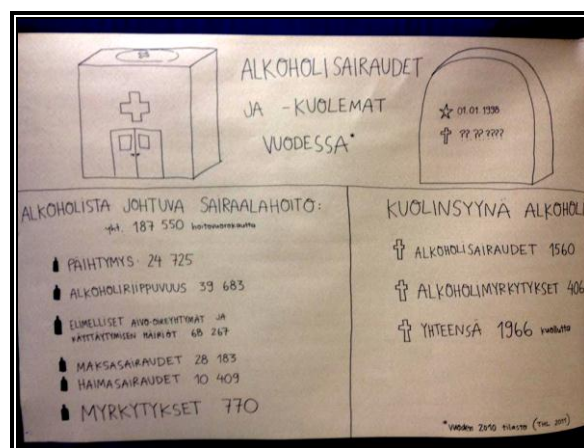 ALKOHOLISAIRAUDET
JA -KUOLEMAT
VUODESSA*
01.01.1998
??.??.????
ALKOHOLISTA JOHTUVA SAIRAALAHOITO:
yht. 187 550 hoitovuorokautta
PÄIHTYMYS- 24 725
ALKOHOLIRIIPPUVUUS 39 683
ELIMELLISET AIVO-OIREYHTYMÄT JA
KÄYTTÄYTYMISEN HÄIRIÖT 68 267
MAKSASAIRAUDET 28 183
HAIMASAIRAUDET 10 409
MYRKYTYKSET 770
KUOLINSYYNÄ ALKOHOLI
ALKOHOLISAIRAUDET 1560
ALKOHOLIMYRKYTYKSET 406
YHTEENSÄ 1966 kuollutta
*vuoden 2010 tilasto (THL 2011)